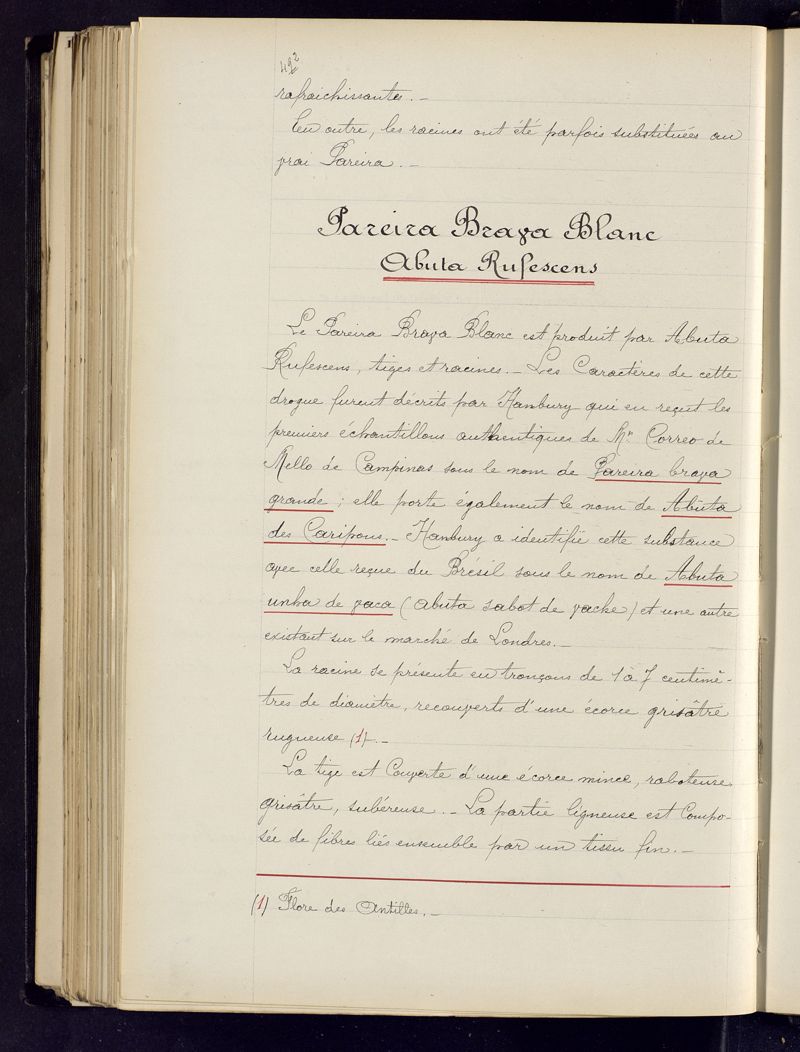 492
rafraichissantes. _
En outre, les racines ont été parfois substituées au
vrai Pareira. _
Pareira Brava Blanc
Abuta Rufescens
Le Pareira Brava Blanc est produit par Abuta
Rufescens, tiges et racines. _ Les Caractères de cette
drogue furent décrits par Hanbury qui en reçut les
premiers échantillons authentiques de Mr Correo de
Mello de Campinas sous le nom de Pareira brava
grande ; elle porte également le nom de Abuta
des Caripons. _ Hanbury a identifié cette substance
avec celle reçue du Brésil sous le nom de Abuta
unha de vaca (Abuta sabot de vache) et une autre
existant sur le marché de Londres. _
La racine se présente en tronçons de 1 à 7 centimè-
tres de diamètre, recouverts d'une écorce grisâtre
rugueuse (1) _
La tige est Couverte d'une écorce mince, raboteuse
grisâtre, subéreuse. _ La partie ligneuse est Compo-
sée de fibres liés ensemble par un tissu fin. _
(1) Flore des Antilles. _